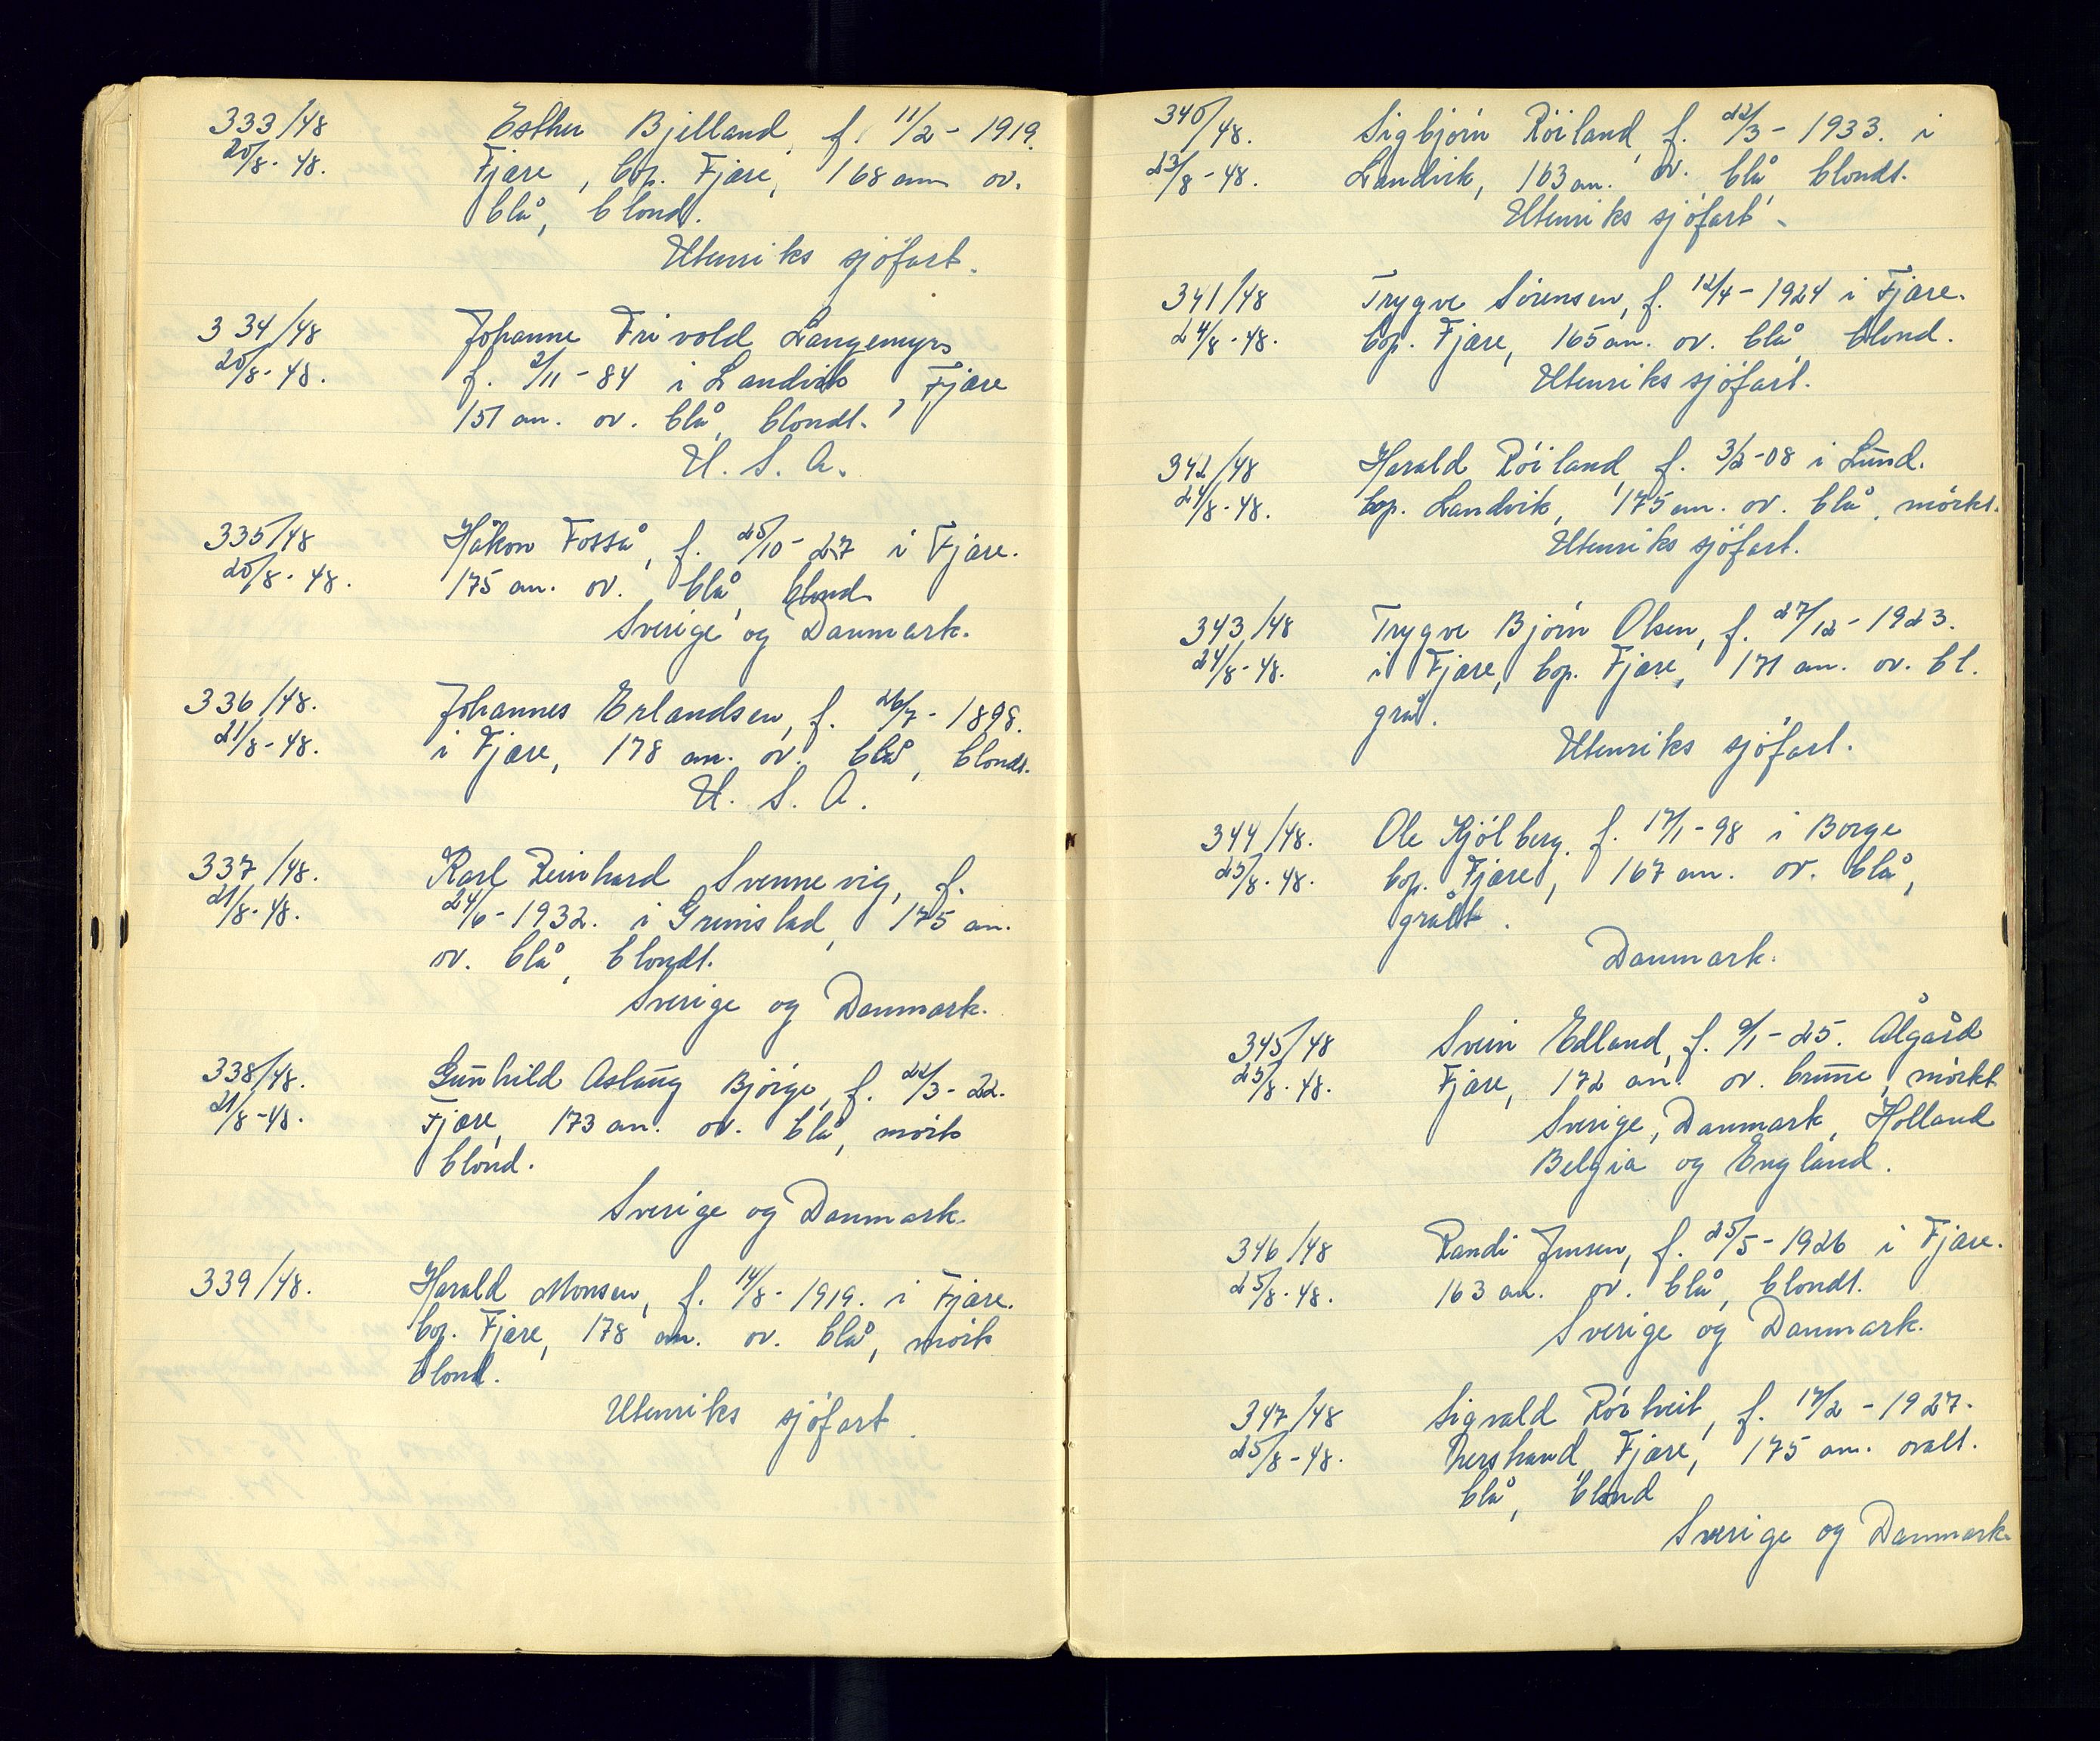 333/48 Esther Bjelland, f. 11/2 - 1919.
20/8 - 48. Fjære, bop. Fjære, 168 cm ov.
blå, blond.
Utenriks sjöfart.
334/48 Johanne Frivold Langemyr
20/8 - 48. f. 3/11 - 84 i Landvik, Fjære
151 cm. ov. blå, blondt.
U. S. A.
335/48 Håkon Fosså, f. 25/10 - 27 i Fjære.
20/8 - 48. 175 cm. ov. blå, blond
Sverige og Danmark.
336/48. Johannes Erlandsen, f. 26/7 - 1898.
21/8 - 48. i Fjære, 178 cm. ov. blå, blondt.
U. S. A.
337/48. Karl Reinhard Svennevig, f.
21/8 - 48. 24/6 - 1932. i Grimstad, 175 cm.
ov. blå, blondt.
Sverige og Danmark.
338/48. Gunhild Aslaug Bjørge, f. 22/3 - 22.
21/8 - 48. Fjære, 173 cm. ov. blå, mörk
blond.
Sverige og Danmark.
339/48. Harald Monsen, f. 14/8 - 1919. i Fjære.
bop. Fjære, 178 cm. ov. blå, mörk
blond.
Utenriks sjöfart.
340/48. Sigbjörn Röiland, f. 22/3 - 1933. i
23/8 - 48. Landvik, 163 cm. ov. blå, blondt.
Utenriks sjöfart.
341/48 Trygve Sörensen, f. 12/4 - 1924 i Fjære.
24/8 - 48. bop. Fjære, 165 cm. ov. blå, blond.
Utenriks sjöfart.
342/48 Harald Röiland, f. 3/2 - 08 i Lund.
24/8 - 48. bop. Landvik, 175 cm. ov. blå, mörkt.
Utenriks sjöfart.
343/48 Trygve Björn Olsen, f. 27/12 - 1923.
24/8 - 48. i Fjære, bop. Fjære, 171 cm. ov. bl.
grå.
Utenriks sjöfart.
344/48. Ole Kjölberg. f. 17/1 - 98 i Borge
25/8 - 48. bop. Fjære, 167 cm. ov. blå,
grått.
Danmark.
345/48 Svein Edland, f. 9/1 - 25. Ålgård
25/8 - 48. Fjære, 172 cm. ov. brune, mörkt
Sverige, Danmark, Holland
Belgia og England.
346/48 Randi Jensen, f. 25/5 - 1926 i Fjære.
25/8 - 48. 163 cm. ov. blå, blondt.
Sverige og Danmark.
347/48 Sigvald Rörtveit, f. 17/2 - 1927.
25/8 - 48. Fjære, 175 cm. ovalt.
blå, blond
Sverige og Danmark.